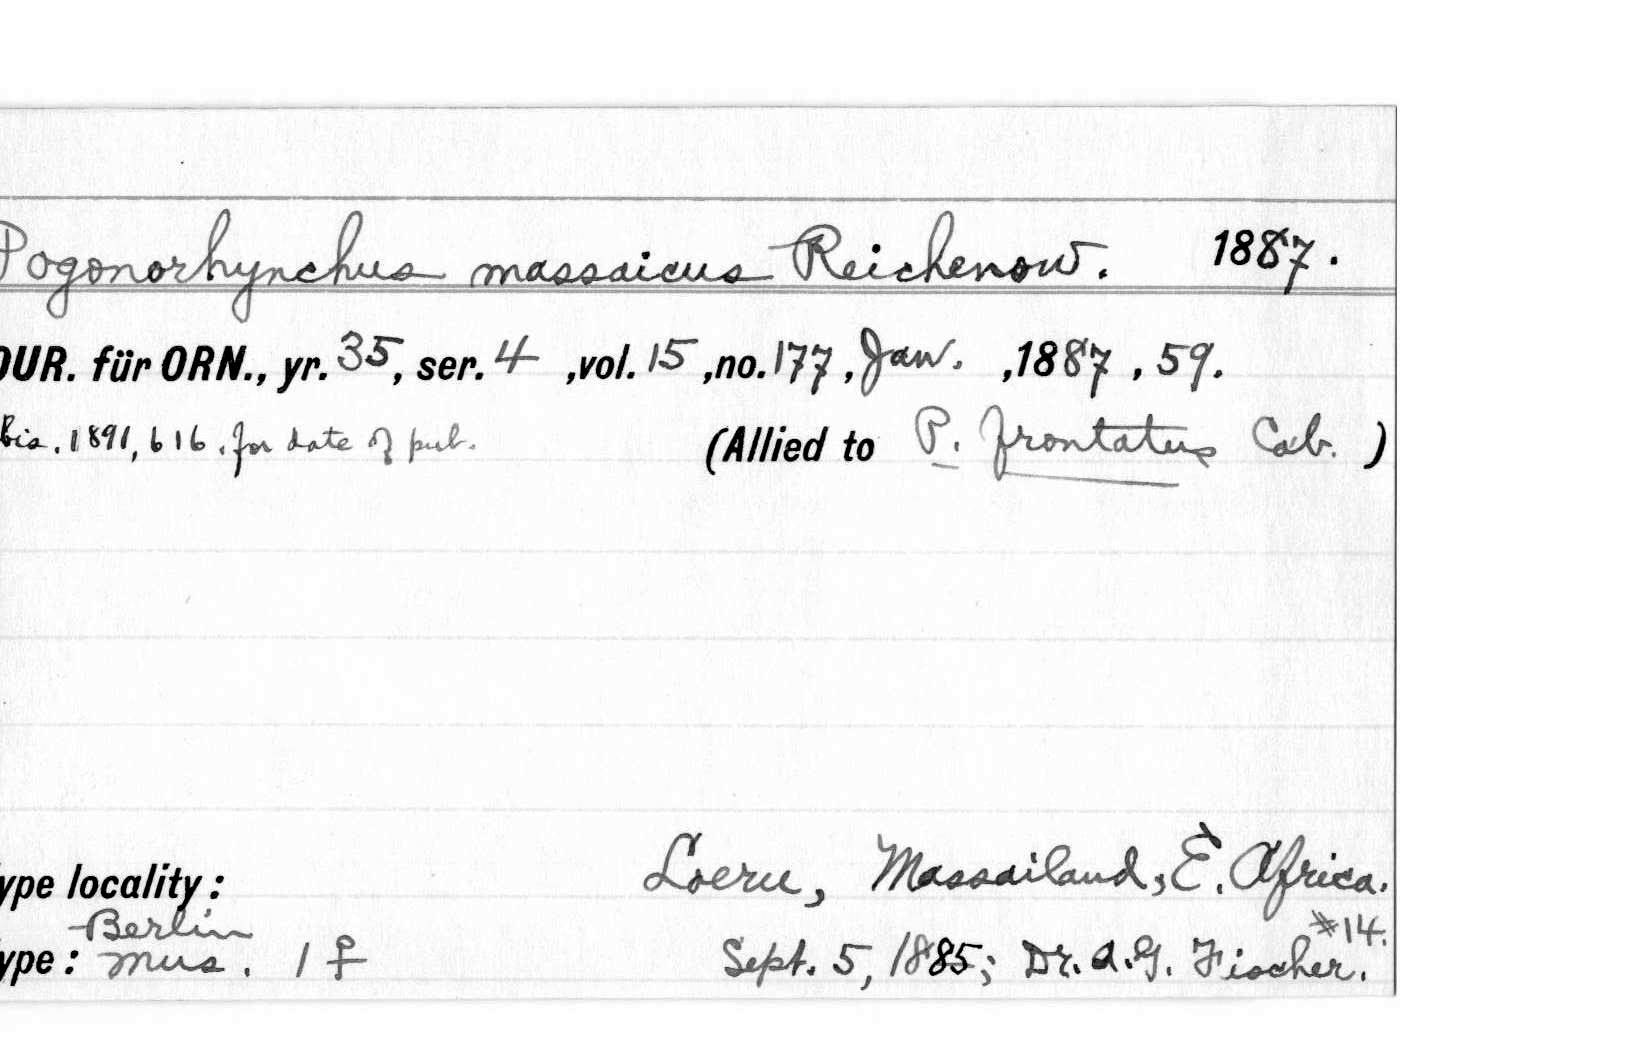 Pogonorhynchus massaicus Reichenow. 1887.
OUR. für ORN., yr. 35, ser. 4 ,vol. 15 ,no. 177, Jan. ,1887 , 59.
bis. 1891, 616. for date of pub. (Allied to P. frontatus Cab. )
ype locality: Loeru, Massailand, E. Africa.
Berlin #14.
ype: Mus. 1 ♀ Sept. 5, 1885; Dr. A.G. Fischer.